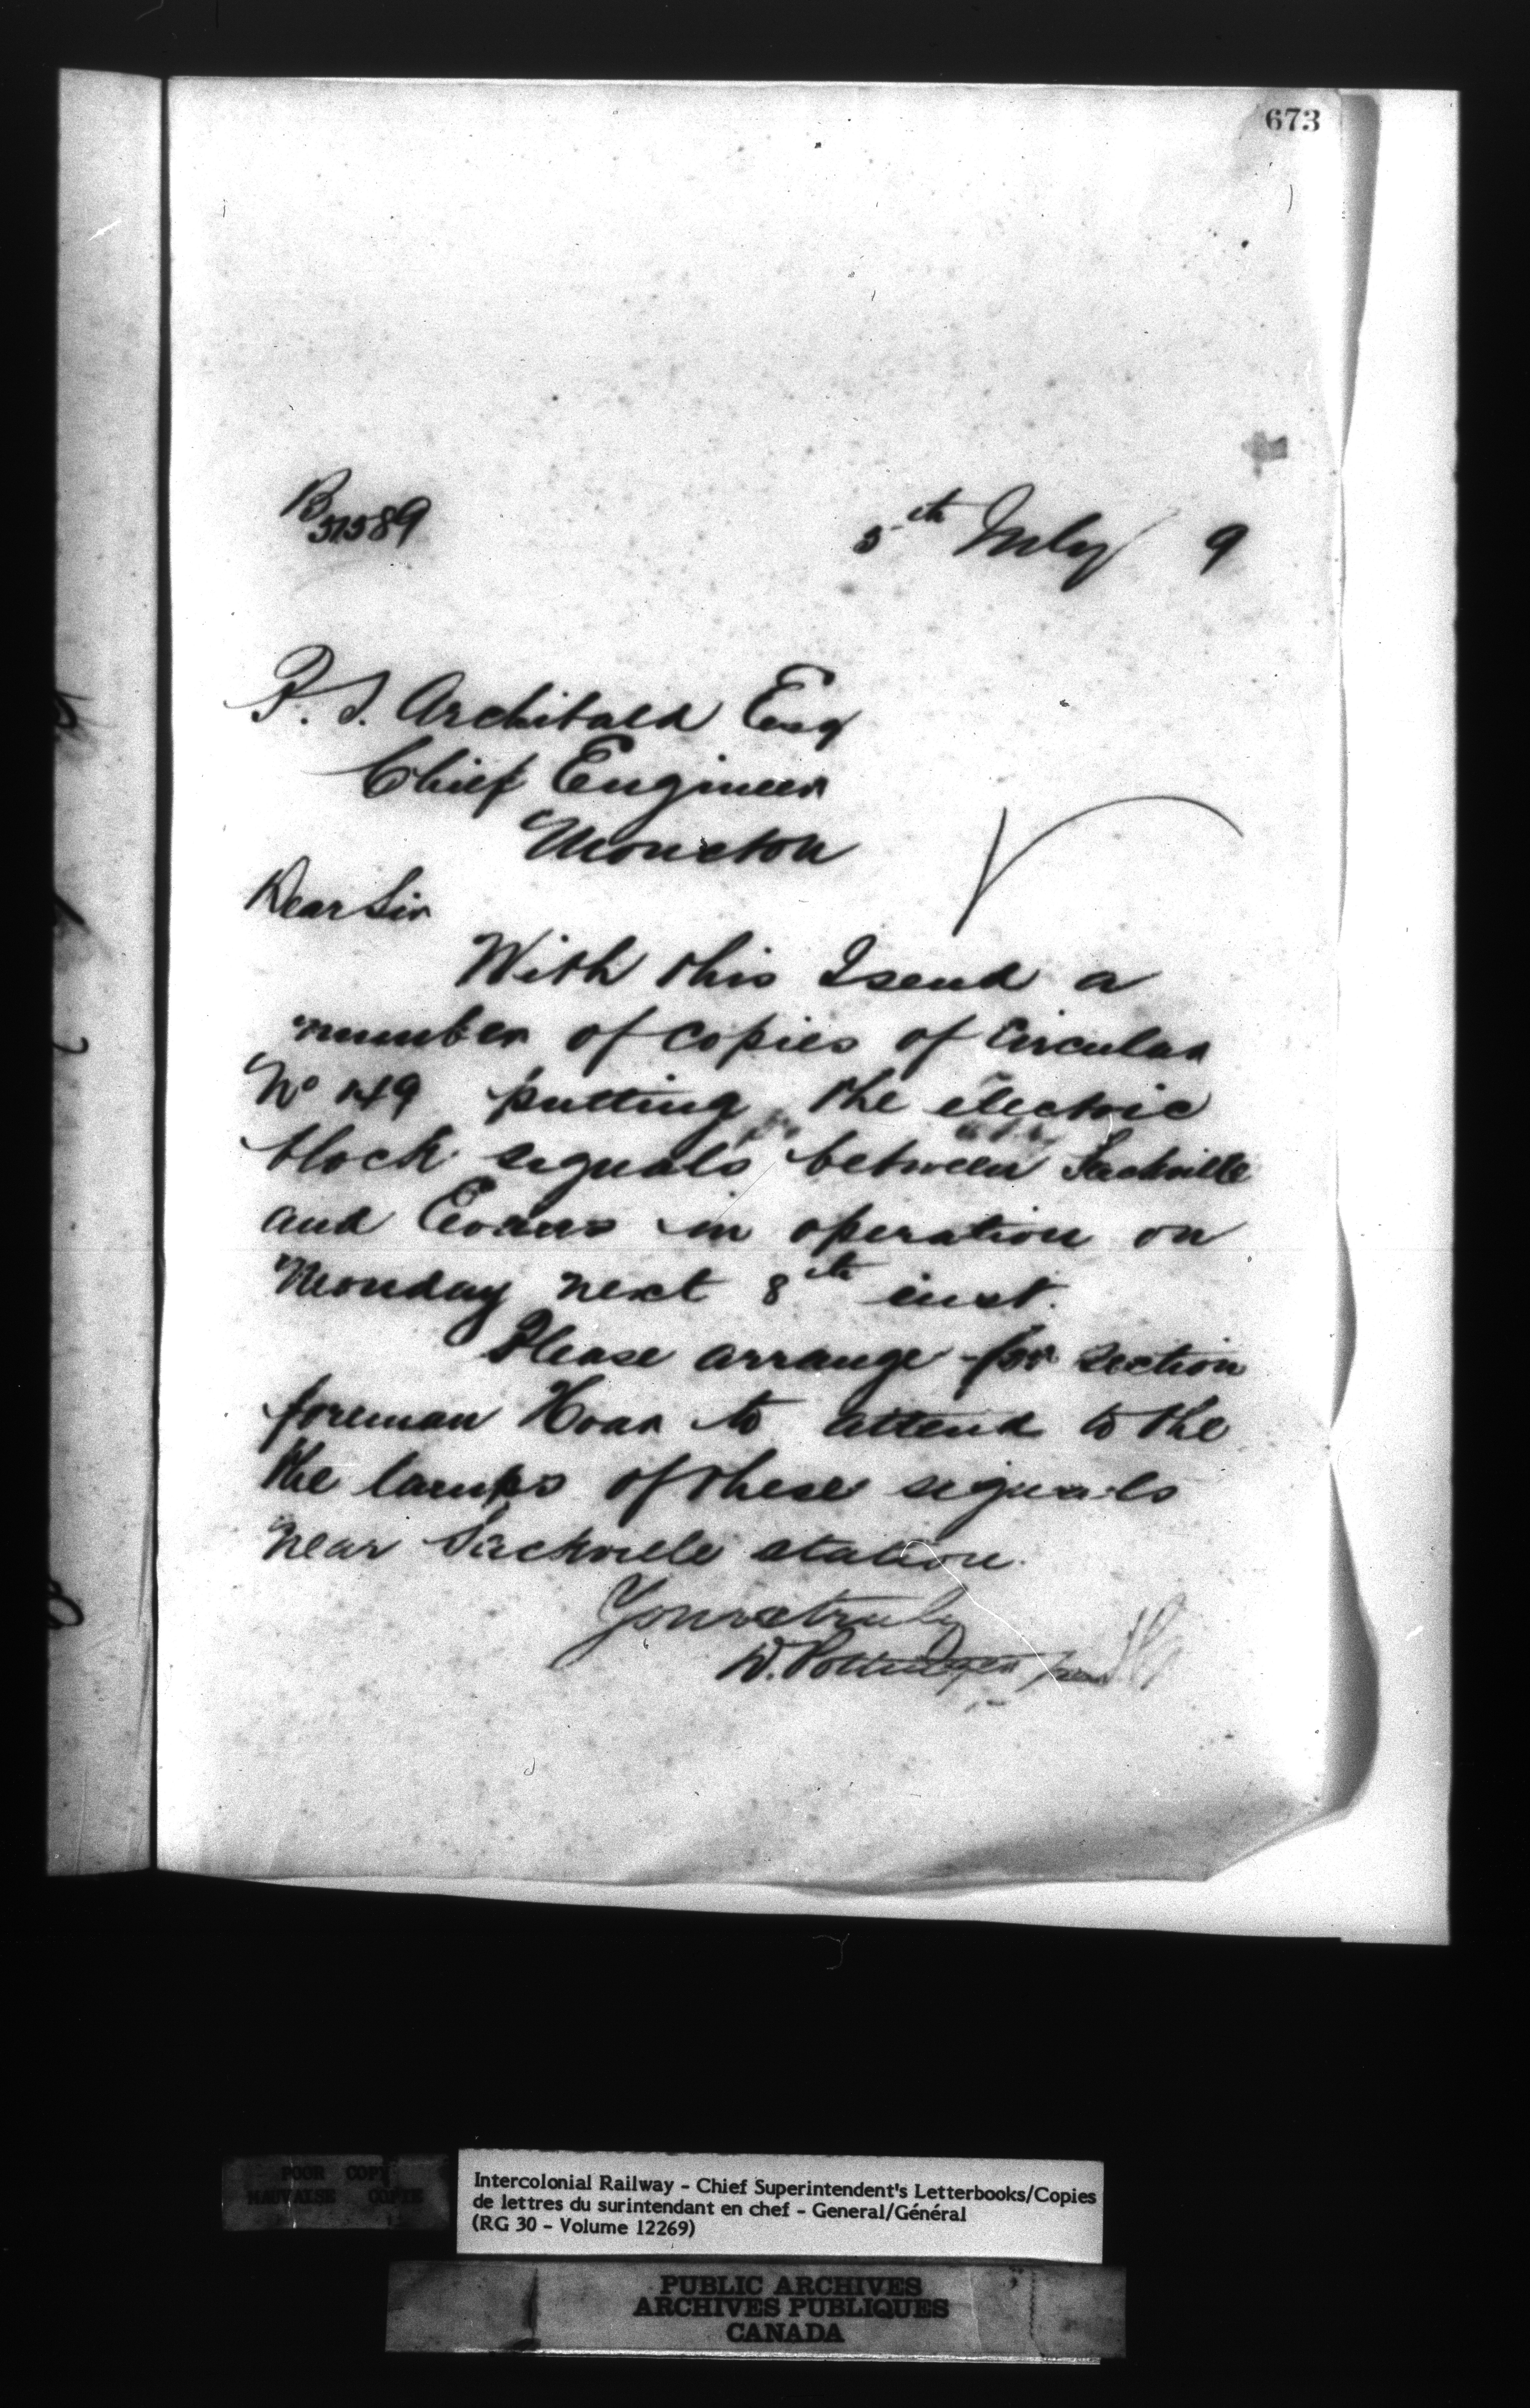 673
B 51589
5th July 9
P. S. Archibald Esq
Chief Engineer
Moncton
Dear Sir
With this I send a
number of copies of Circular
No 149 putting the electric
block signals between Sackville
and Evans in operation on
Monday next 8th inst.
Please arrange for section
foreman Hoar to attend to the
the lamps of these signals
near Sackville station.
Yours truly
D. Pottinger
POOR COPY
MAUVAISE COPIE
Intercolonial Railway - Chief Superintendent's Letterbooks/Copies
de lettres du surintendant en chef - General/Général
(RG 30 - Volume 12269)
PUBLIC ARCHIVES
ARCHIVES PUBLIQUES
CANADA